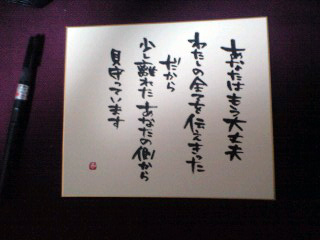 あなたはもう大丈夫
わたしの全てを伝えきった
だから
少し離れたあなたの側から
見守っています